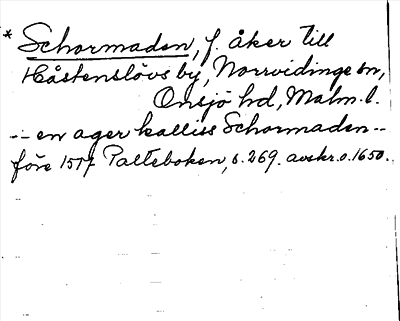 * Schormaden, f. åker till
Håstenslövs by, Norrvidinge sn,
Onsjö hd, Malm. l.
-- en ager kalliss Schormaden --
före 1517 Palteboken, s. 269. avskr. o. 1650.